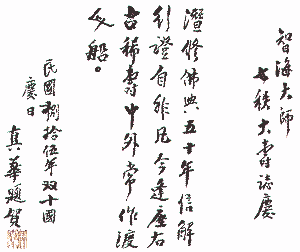 智海大師
七秩大壽誌慶
潛修佛典五十年信解
行證自非凡今逢座右
古稀壽中外常作渡
人船。
民國捌拾伍年双十國
慶日
真華題賀